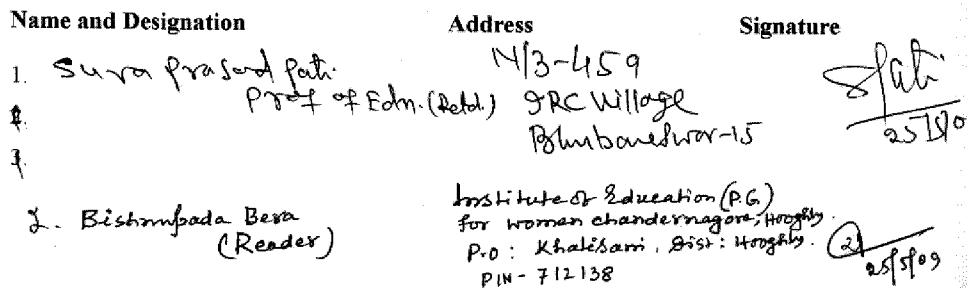 Name and Designation Address Signature
1. Sura Prasad Pati N/3-459 SPati
Prof of Edn. (Retd.) IRC Village
2. Bhubaneswar-15
3.
2. Bishnupada Bera Institute of Education (P.G)
(Reader) for woman chandernagore, Hooghly.
P.O : Khalisani, Dist : Hooghly.
PIN - 712138 25/5/09